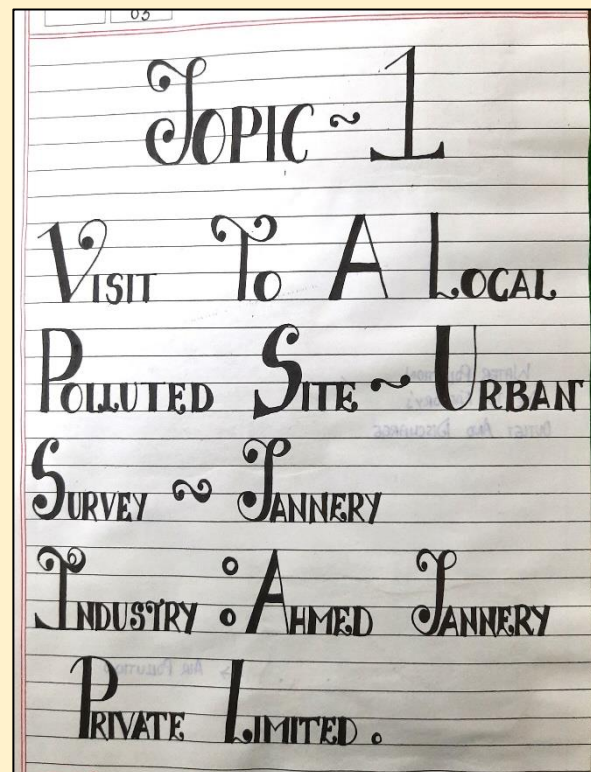 03
TOPIC ~ 1
VISIT TO A LOCAL
POLLUTED SITE ~ URBAN
SURVEY ~ TANNERY
INDUSTRY : AHMED TANNERY
PRIVATE LIMITED.